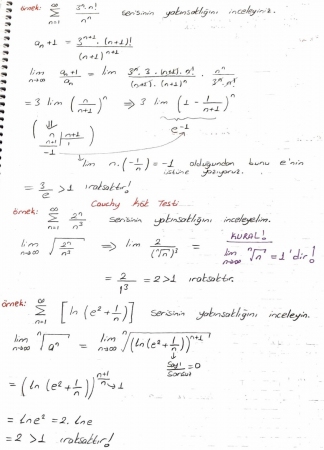 örnek: ∞∑n=1 3ⁿ.n!/nⁿ serisinin yakınsaklığını inceleyiniz.
aₙ+1 = 3ⁿ⁺¹.(n+1)!/(n+1)ⁿ⁺¹
lim n→∞ aₙ₊₁/aₙ = lim 3ⁿ.3.(n+1).n!/(n+1).(n+1)ⁿ . nⁿ/3ⁿ.n!
= 3 lim (n/n+1)ⁿ ⇒ 3 lim (1 - 1/n+1)ⁿ
(↓ n n+1 e⁻ⁿ
-1 1
lim n.(-1/n) = -1 olduğundan bunu e'nin
üstüne yazıyoruz.
= 3/e > 1 ıraksaktır!
Cauchy Kök Testi
örnek: ∞∑n=1 2ⁿ/n³ serisinin yakınsaklığını inceleyelim.
KURAL!
lim n→∞ ⁿ√2ⁿ/n³ ⇒ lim 2/(ⁿ√n)³ = lim n→∞ ⁿ√n = 1'dir!
= 2/1³ = 2 > 1 ıraksaktır.
örnek: ∞∑n=1 [ln(e²+1/n)] serisinin yakınsaklığını inceleyin.
lim n→∞ ⁿ√aⁿ = lim n→∞ ⁿ√(ln(e²+1/n))ⁿ⁺¹
↓
sayı/sonsuz = 0
= (ln(e²+1/n))^(n+1/n) → 1
= lne² = 2.lne
= 2 > 1 ıraksaktır!